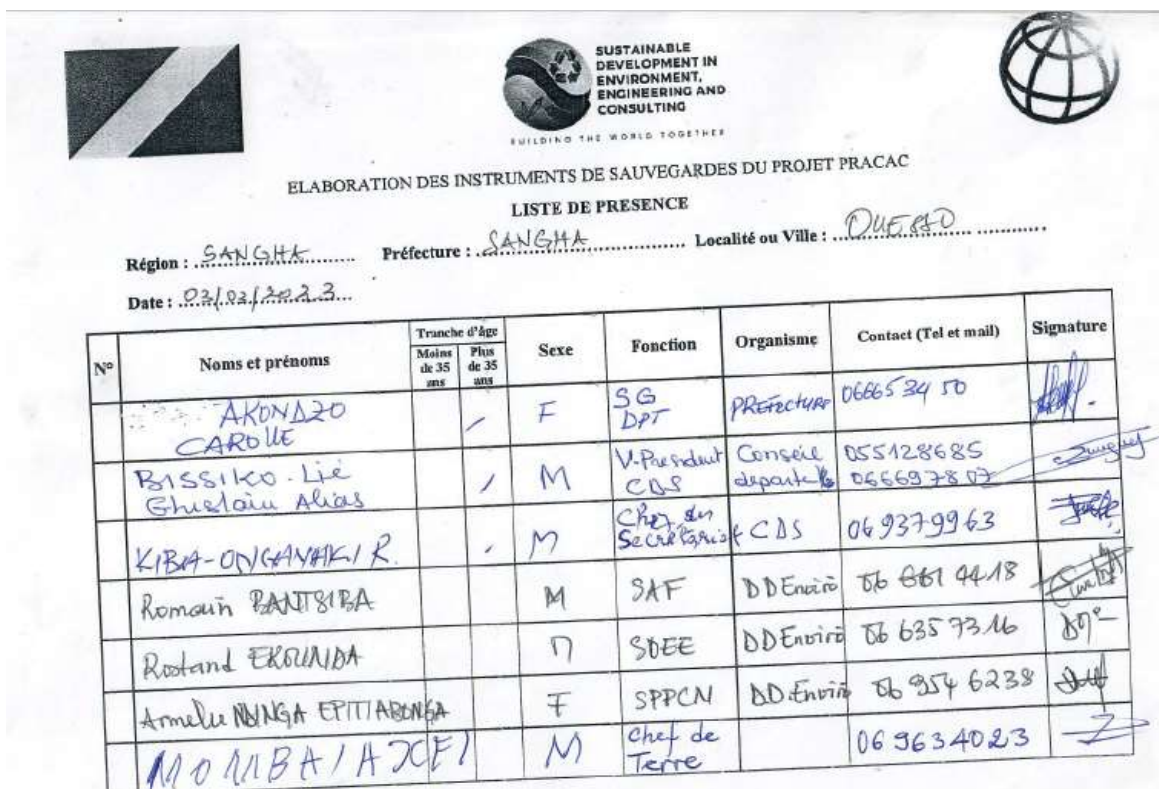 SUSTAINABLE
DEVELOPMENT IN
ENVIRONMENT,
ENGINEERING AND
CONSULTING
BUILDING THE WORLD TOGETHER
ELABORATION DES INSTRUMENTS DE SAUVEGARDES DU PROJET PRACAC
LISTE DE PRESENCE
Région : SANGHA Préfecture : SANGHA Localité ou Ville : OUESSO
Date : 02/02/2023
N° Noms et prénoms Tranche d'âge Moins de 35 ans Plus de 35 ans Sexe Fonction Organisme Contact (Tel et mail) Signature
AKONDZO CAROLLE F SG DPT PREFECTURE 066653450
BISSIKO-Lié Ghislain Alias M V-President CDS Conseil 055128685 066697807
KIBA-ONGAYAKI R. M Chef du Secrétariat CDS 069379963
Romain BANTSIBA M SAF DDEnviro 06 661 44 18
Rostand EKOUNDA M SDEE DDEnviro 06 635 73 16
Armelle F SPPCN DDEnviro 06 954 6238
M Chef de Terre 069634023